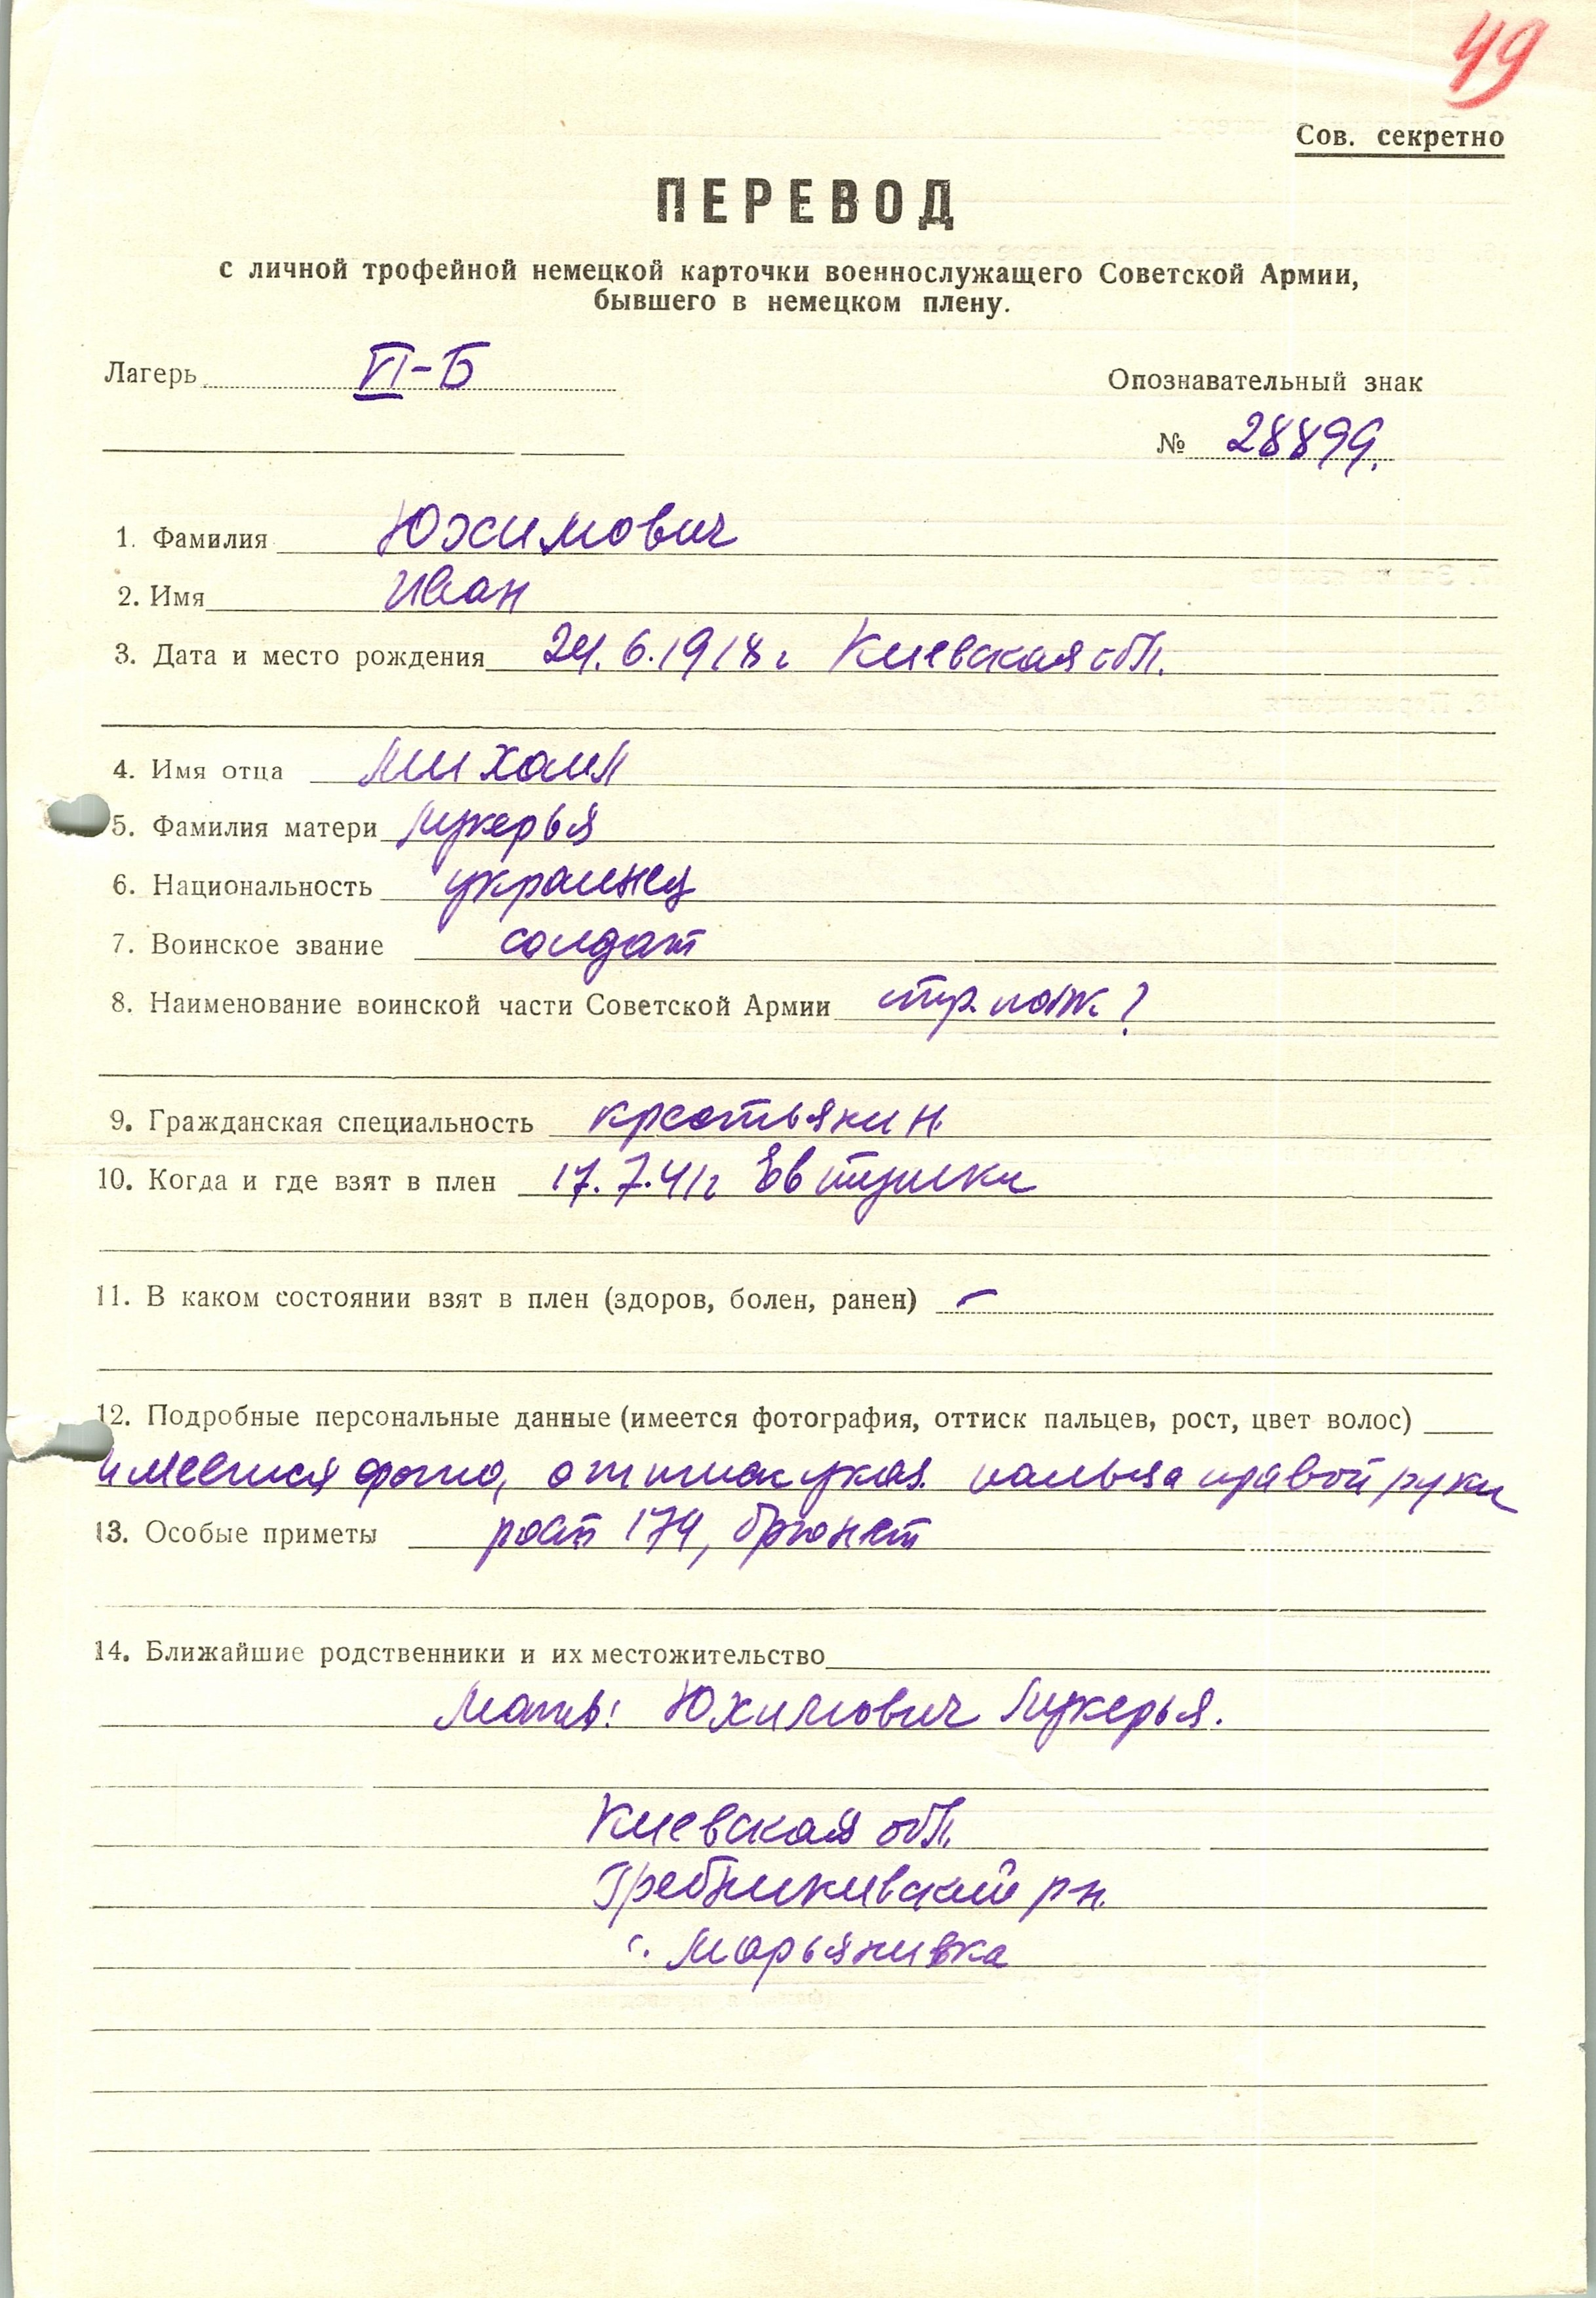 49
Сов. секретно
ПЕРЕВОД
с личной трофейной немецкой карточки военнослужащего Советской Армии,
бывшего в немецком плену.
Лагерь VI-Б
Опознавательный знак
№ 28899.
1. Фамилия Юхимович
2. Имя Иван
3. Дата и место рождения 24.6.1918 г Киевская обл.
4. Имя отца Михаил
5. Фамилия матери Лукерья
6. Национальность украинец
7. Воинское звание солдат
8. Наименование воинской части Советской Армии стр. полк ?
9. Гражданская специальность крестьянин
10. Когда и где взят в плен 17.7.41г Евтушки
11. В каком состоянии взят в плен (здоров, болен, ранен) –
12. Подробные персональные данные (имеется фотография, оттиск пальцев, рост, цвет волос)
имеется фото, оттиск указ. пальца правой руки
13. Особые приметы рост 174, брюнет
14. Ближайшие родственники и их местожительство
Мать: Юхимович Лукерья.
Киевская обл.
Гребникивский р-н.
с. Марьянивка